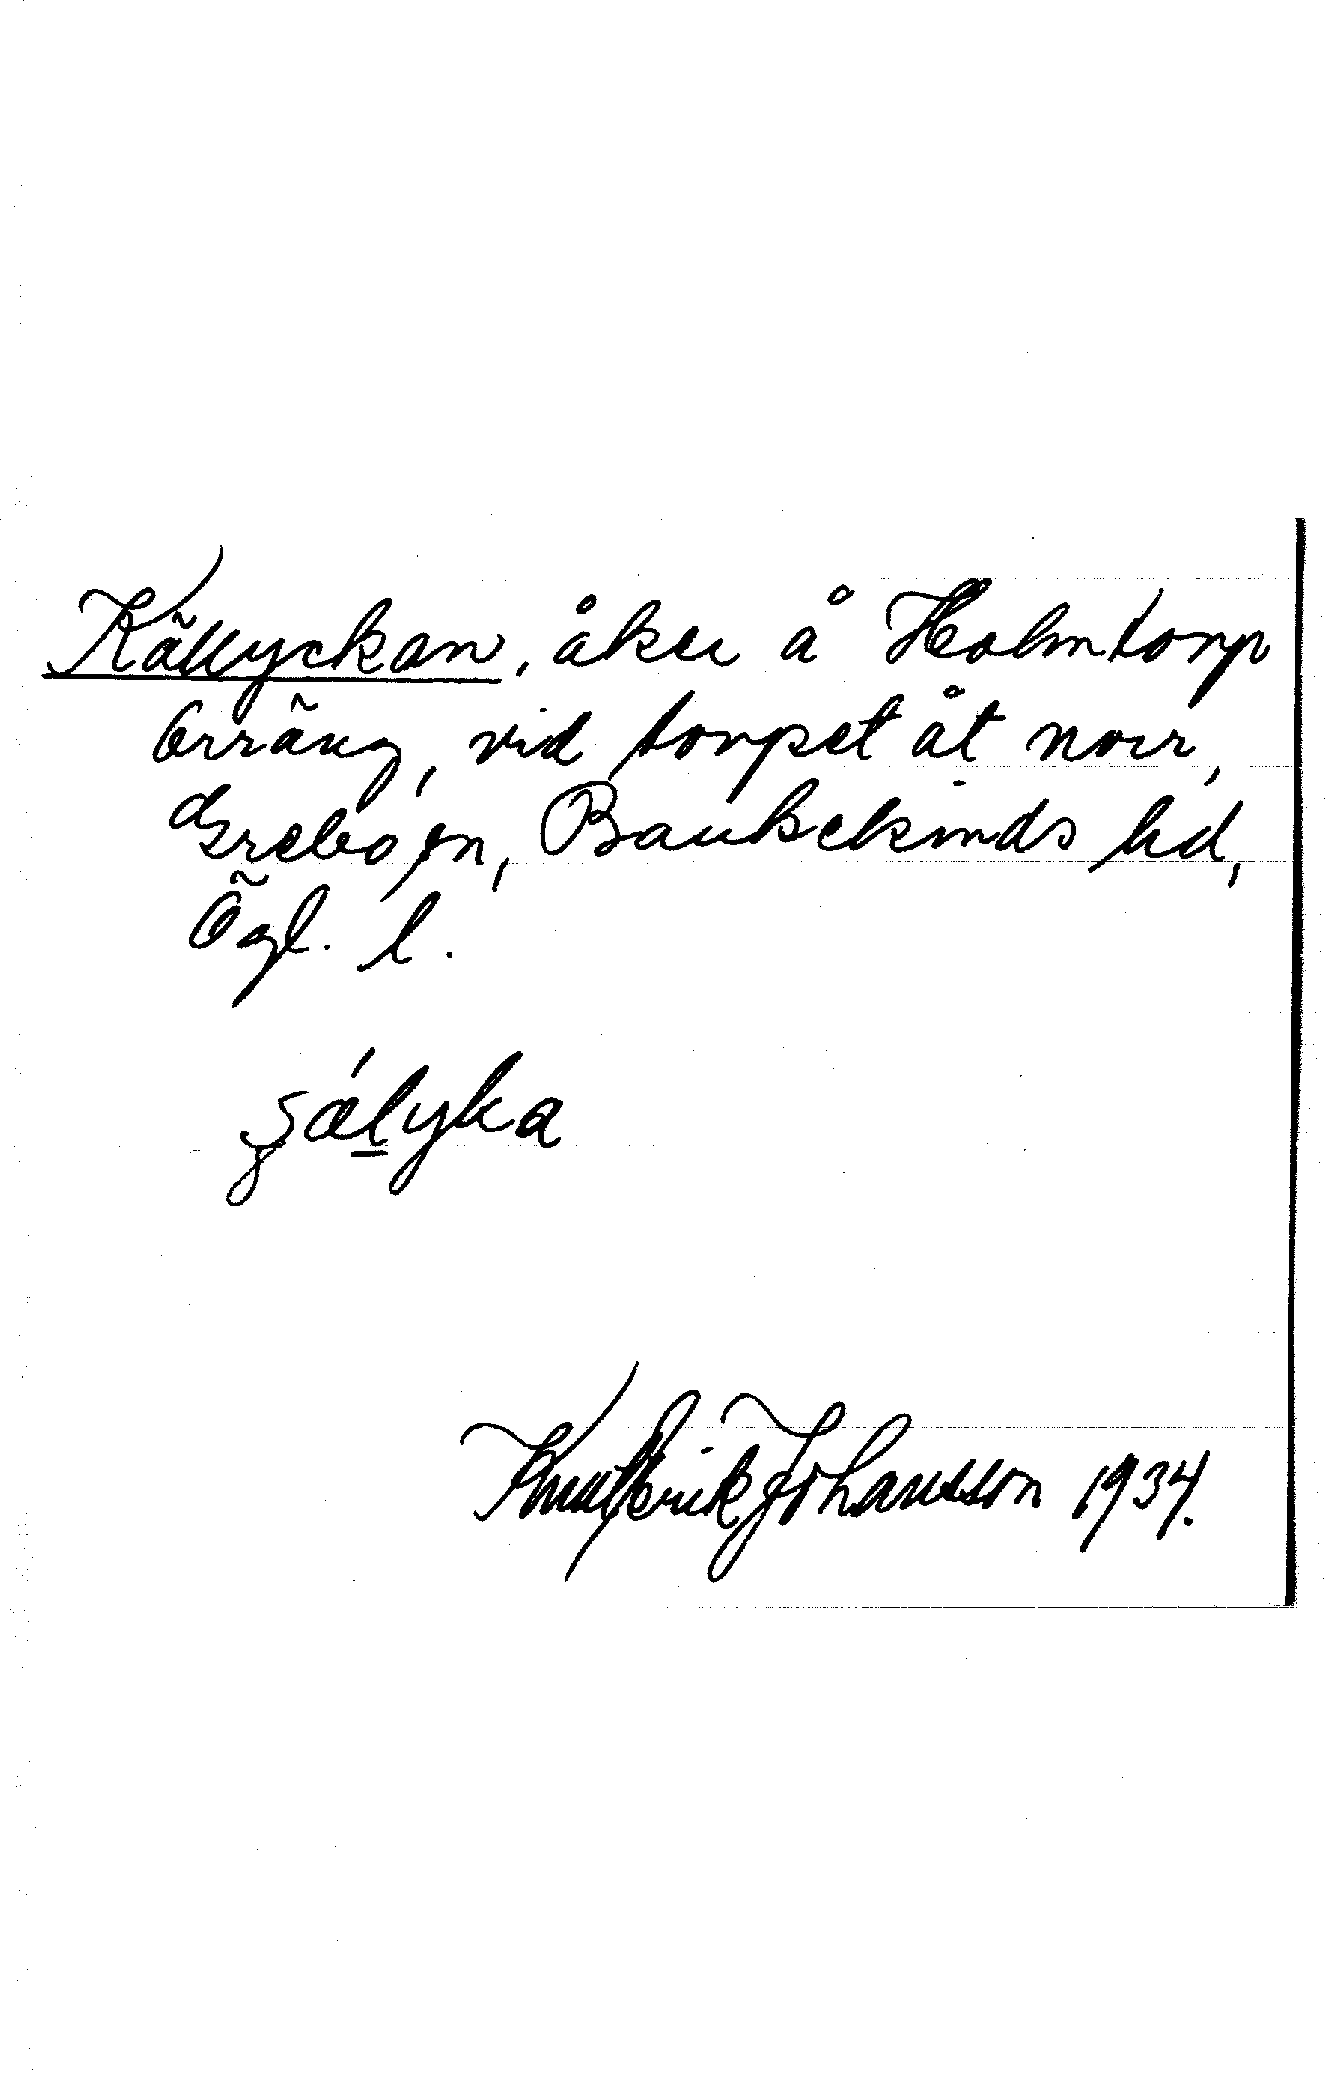 Källyckan, åker å Holmtorp
Orräng, vid torpet åt norr,
Grebo sn, Bankekinds hd,
Ögl. l.
ʂælyka
Knut Erik Johansson 1934.